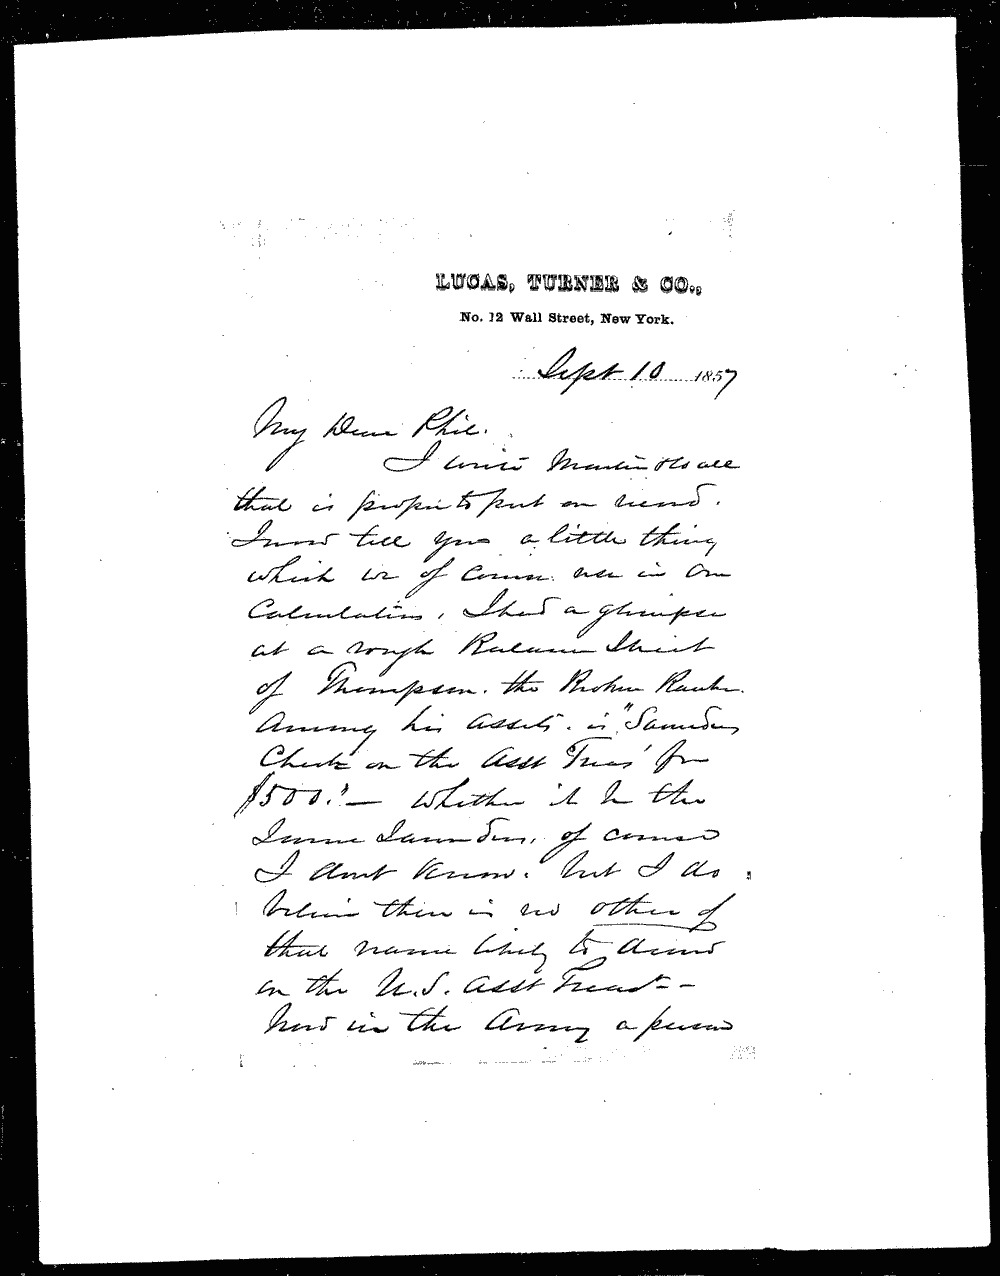 LUCAS, TURNER & CO.,
No. 12 Wall Street, New York.
Sept 10 1857
My Dear Phil.
I write Martin also all
that is proper to put on record.
I now tell you a little thing
which we of course use in our
Calculations. I had a glimpse
at a rough Balance Sheet
of Thompson. the Broken Banker.
Among his assets. is "Saunders
Check on the Asst Treas' for
$500."— Whether it be the
Same Saunders, of course
I dont know. but I do
believe there is no other of
that name likely to draw
on the U.S. Asst Treas--
Now in the Army a person